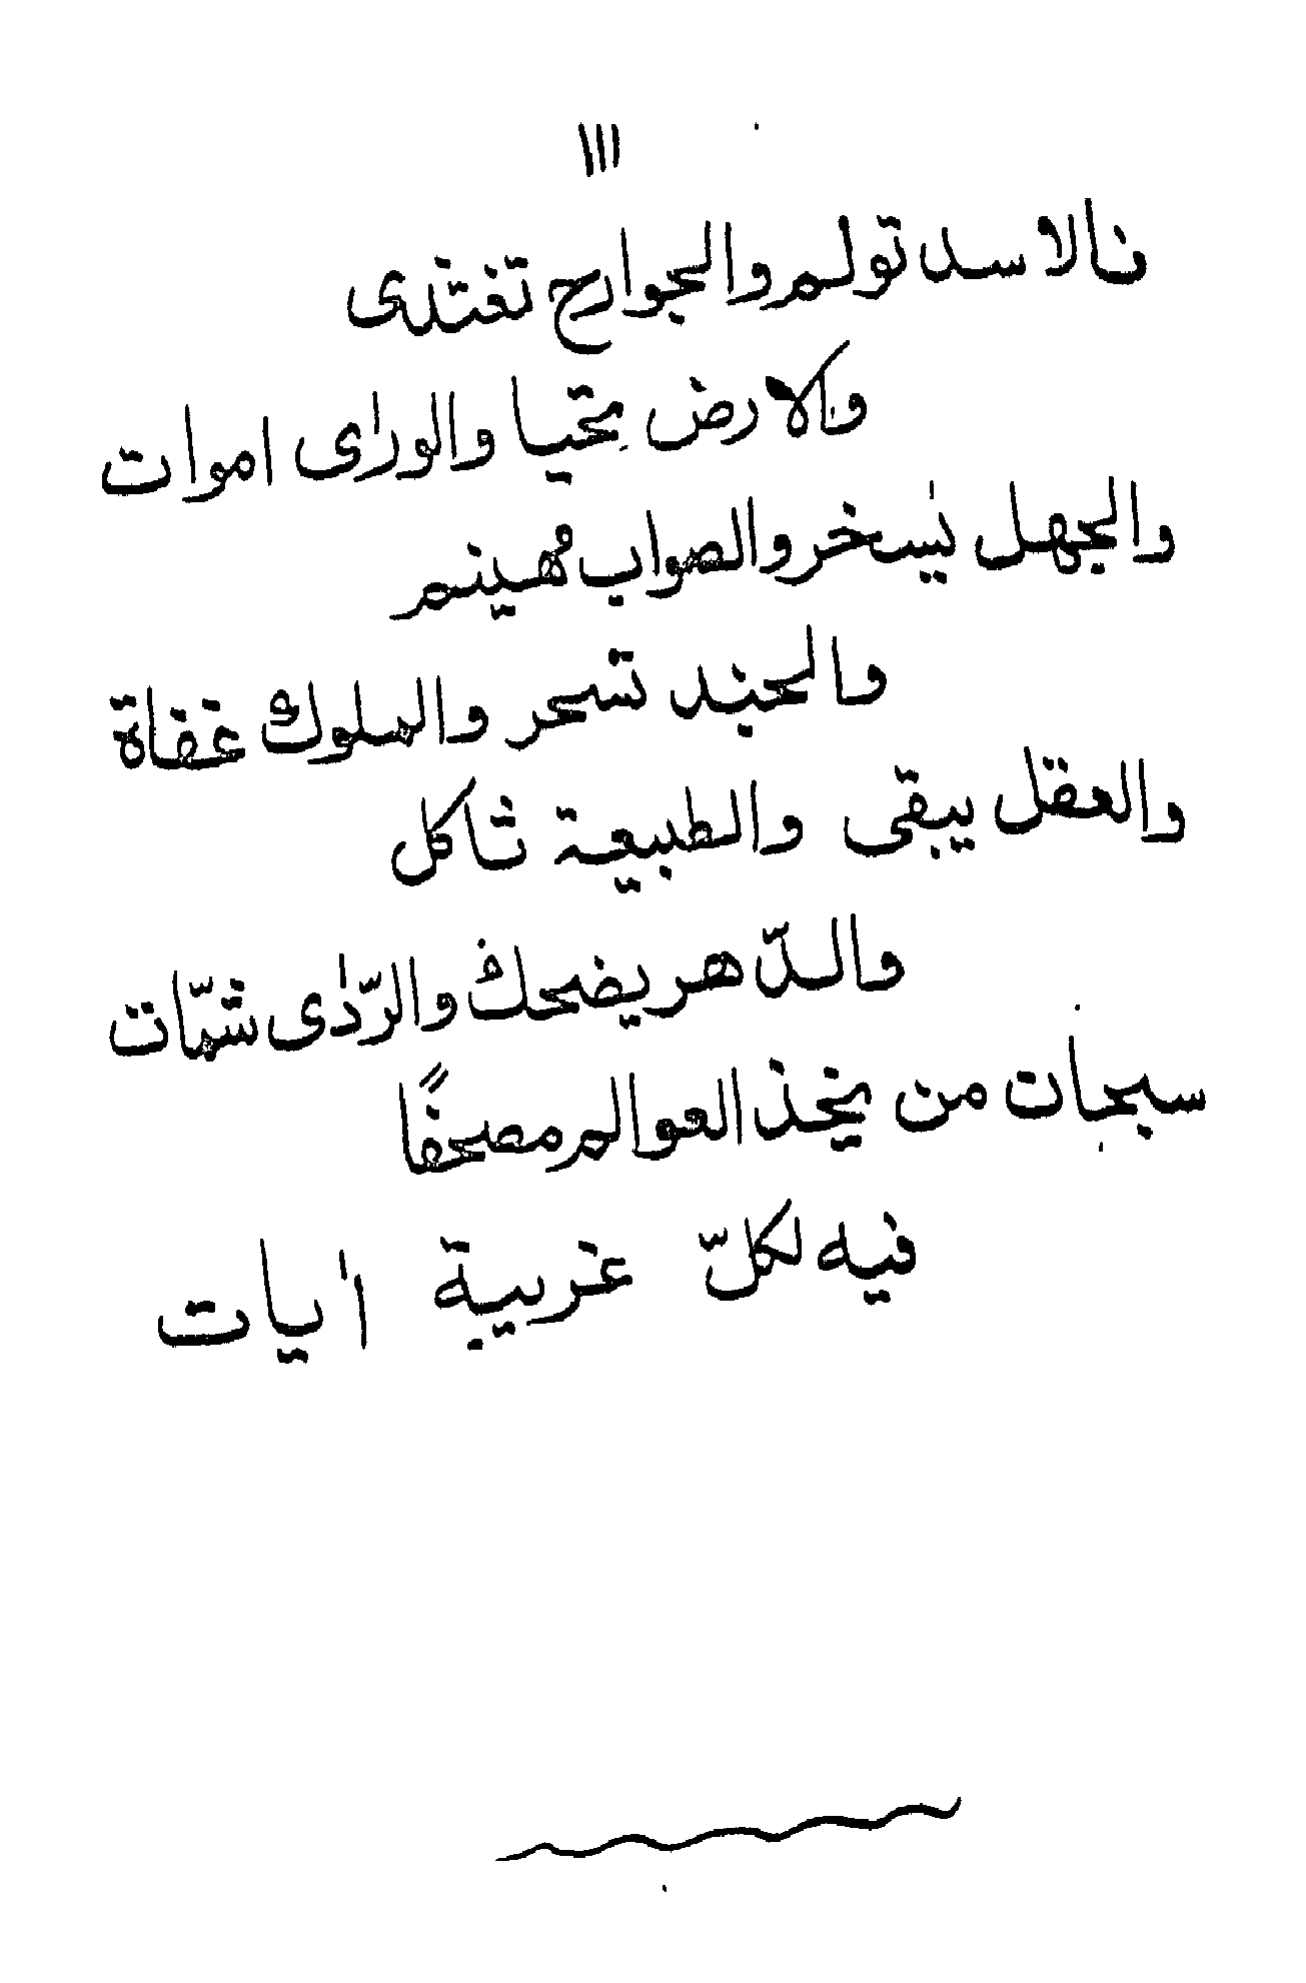 ١١١
فالاسد تولم والجوارح تغتذى
والارض تحيا والورٰى اموات
والجهل يسخر والصواب مُهينم
والجند تسحر والملوك غفاة
والعقل يبقى والطبيعة تأكل
والدّهر يضحك والرّدٰى شمّات
سبحات من يتخذ العوالم مصحفًا
فيه لكلّ غريبة اٰيات